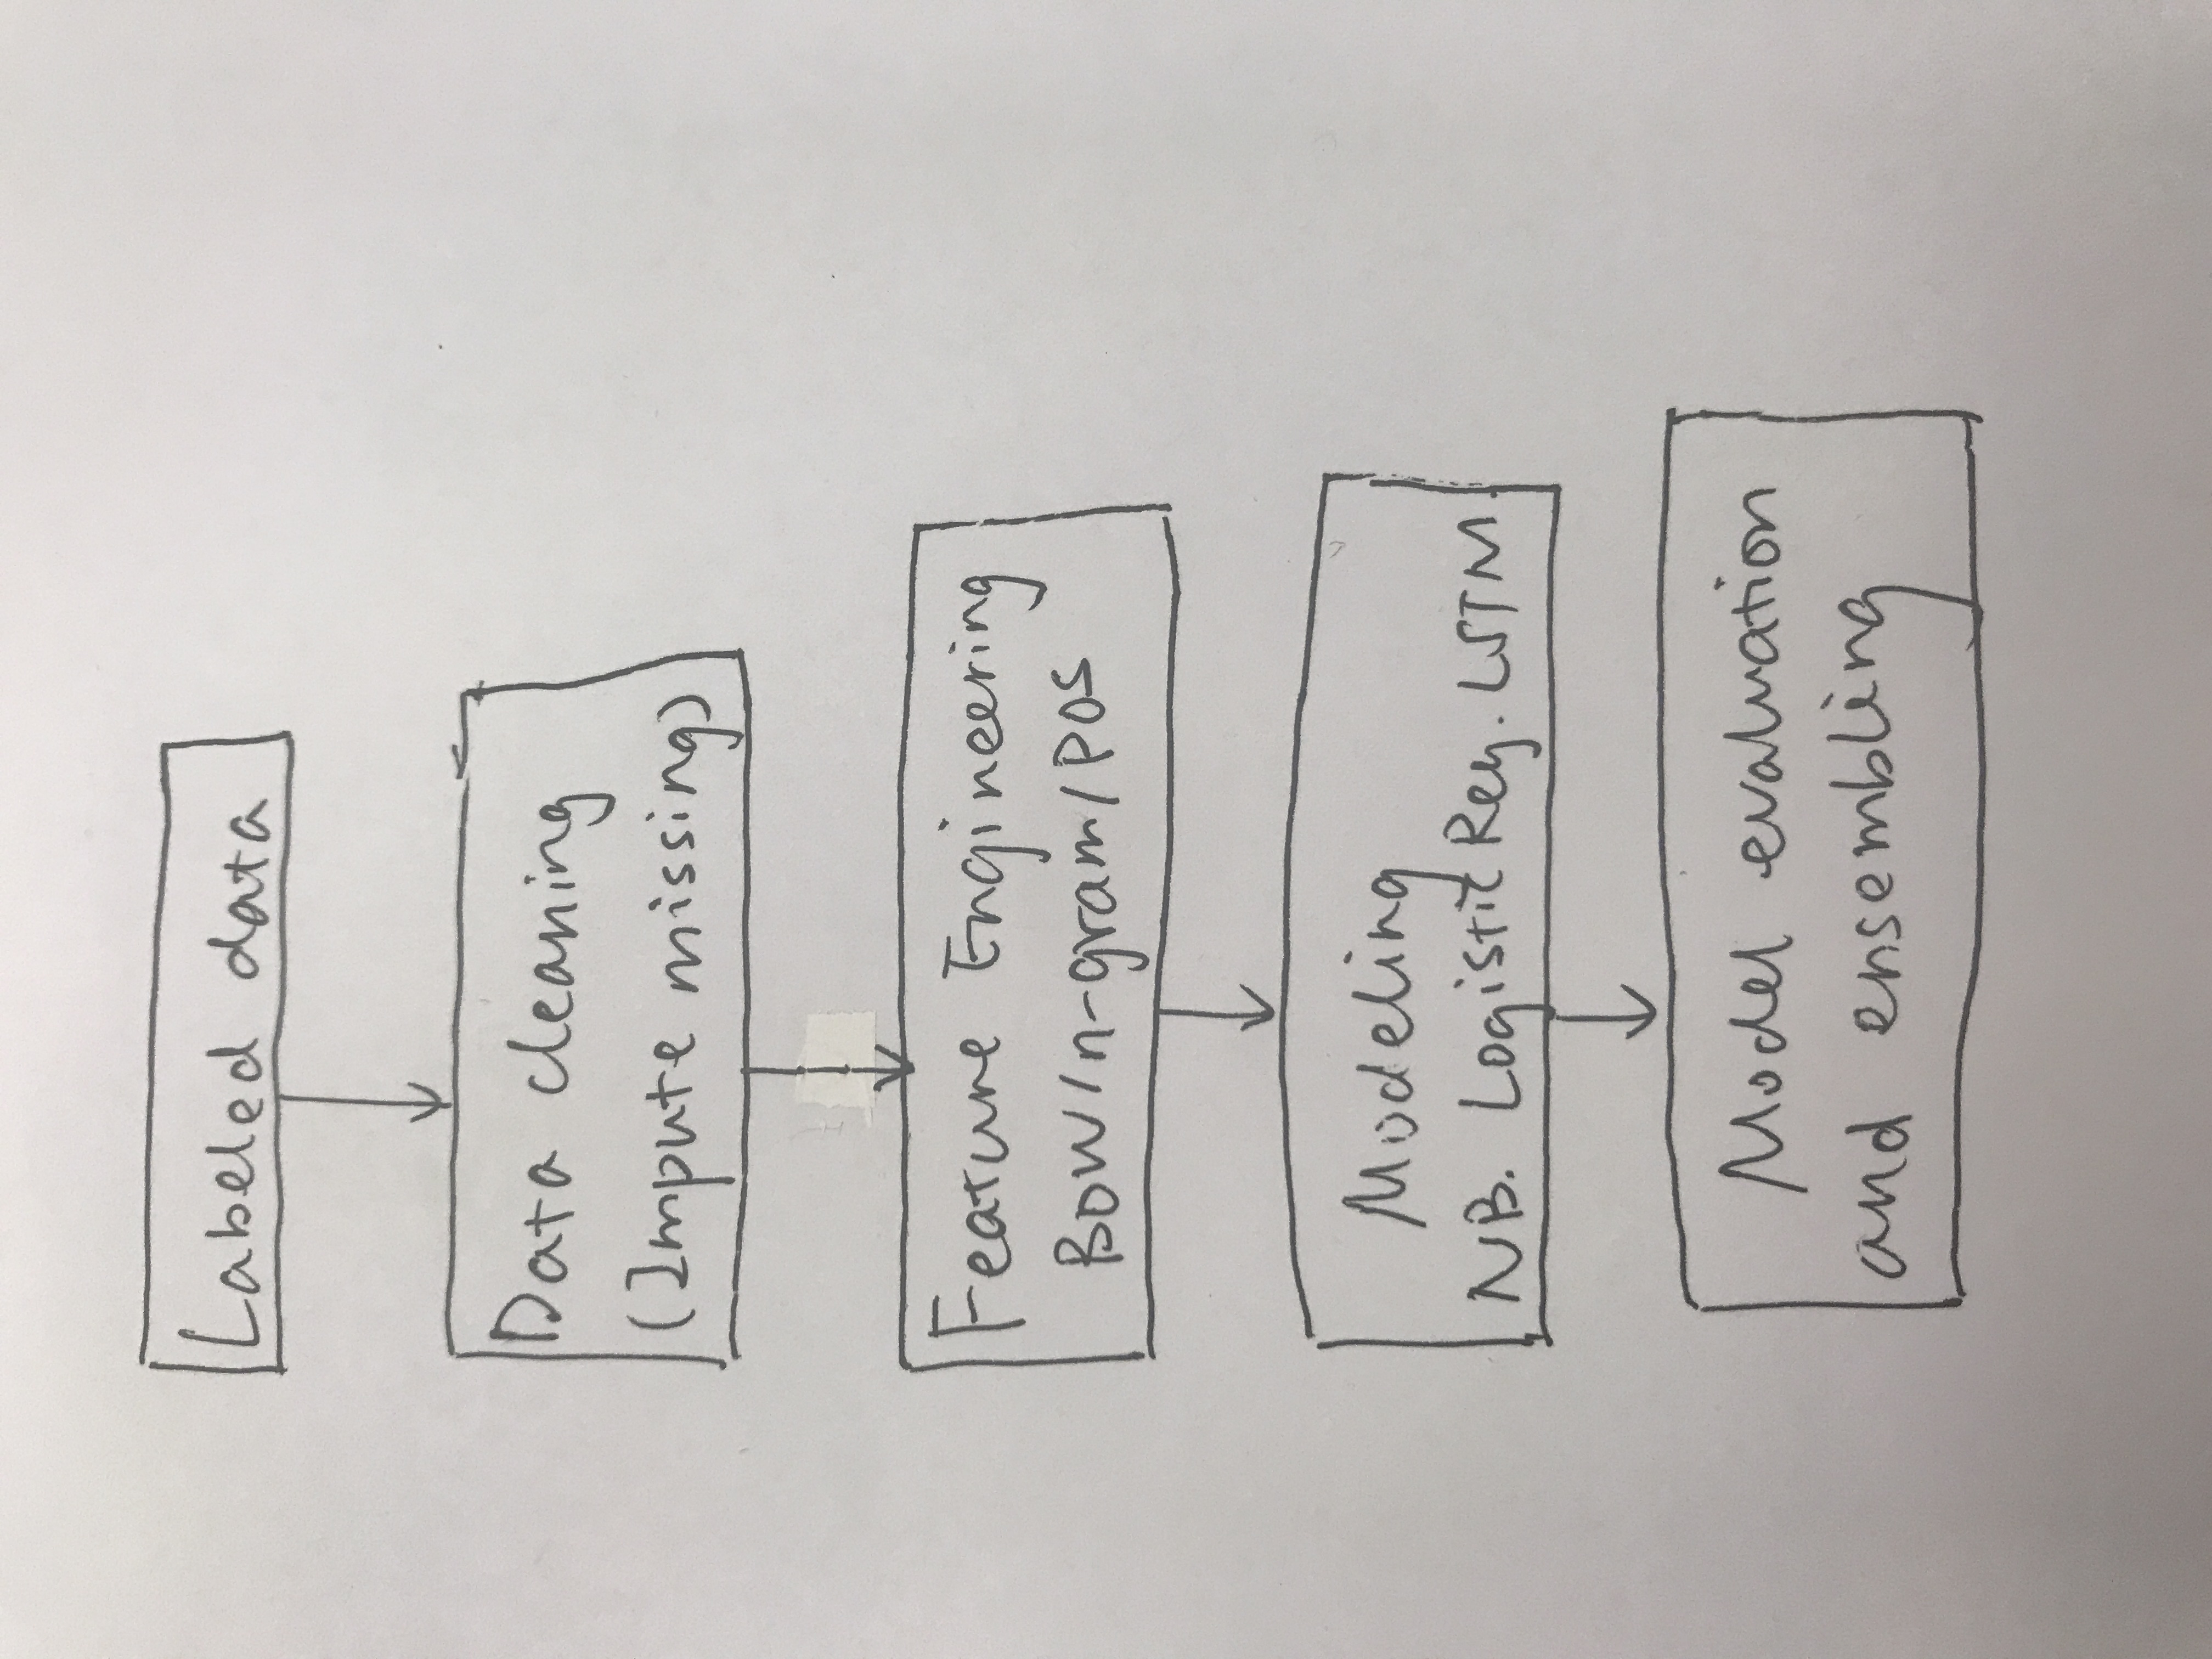 Labeled data
Data cleaning
(Impute missing)
Feature Engineering
BOW/n-gram/POS
Modeling
NB. Logistic Reg. LSTM.
Model evaluation
and ensembling